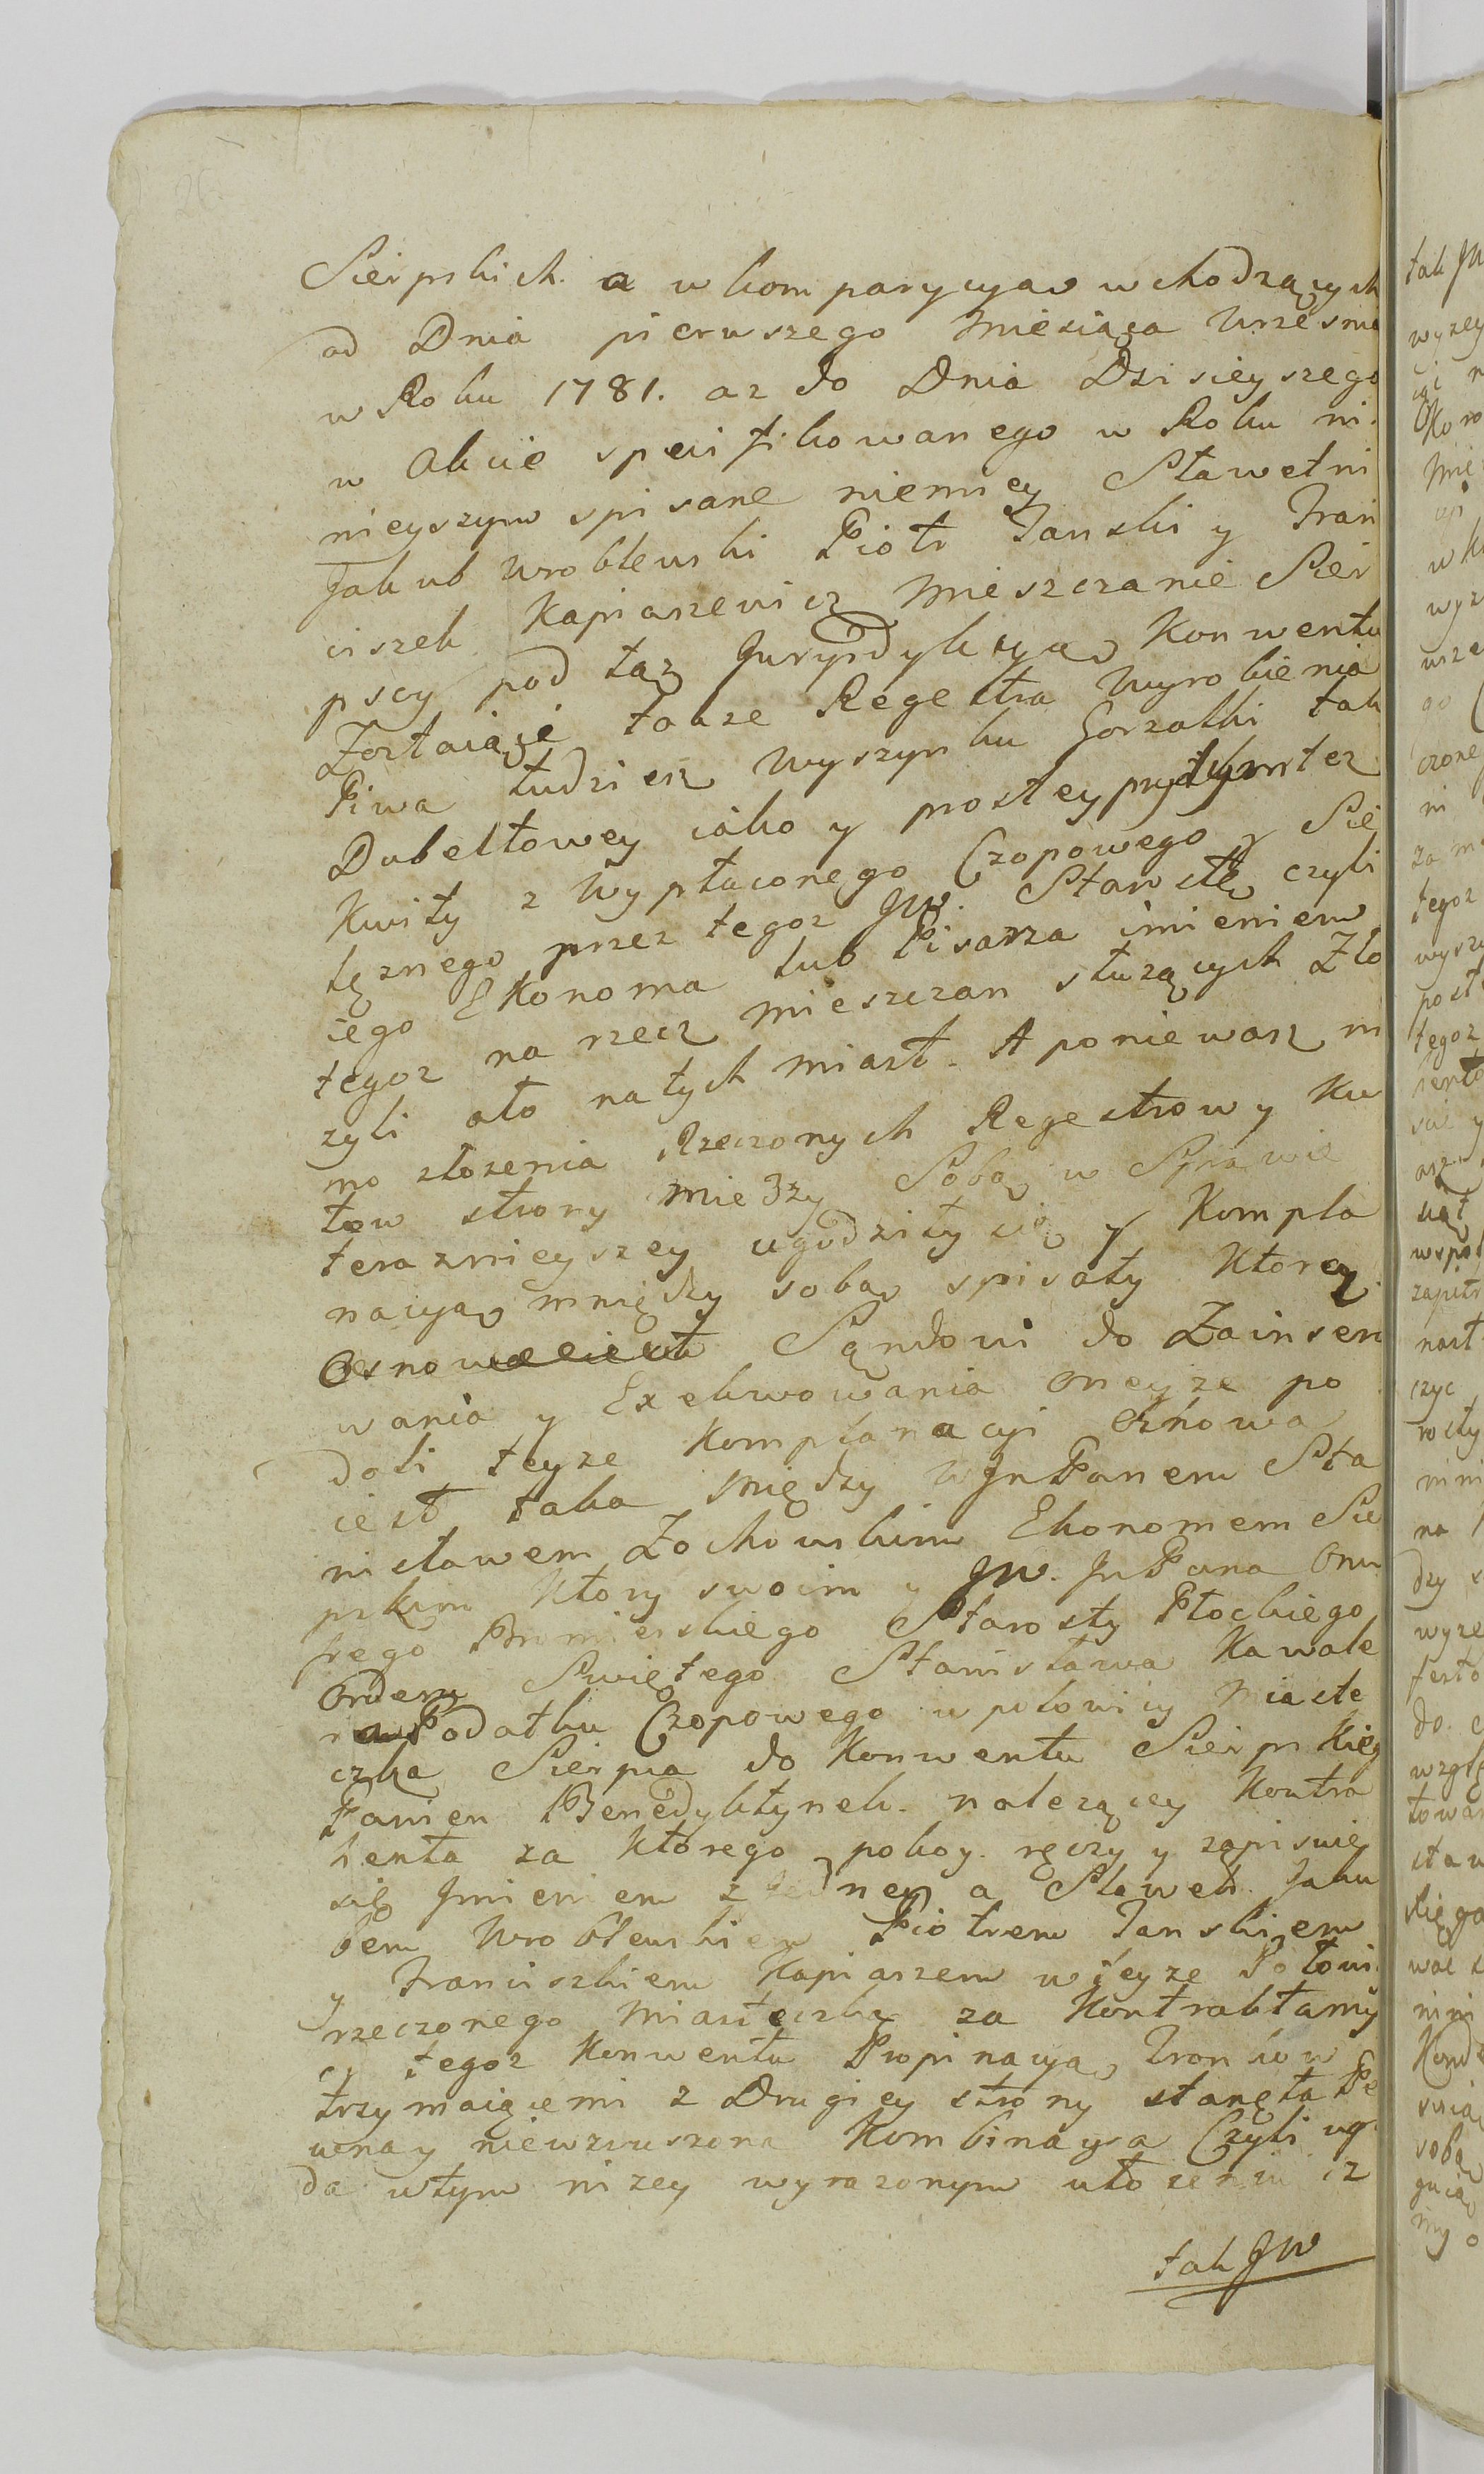 Sierpskich. a w komparycyą wchodzących
od Dnia pierwszego Miesiąca Wrzesnia
w Roku 1781. az do Dnia Dzisieyszego
w Akcie specifikowanego w Roku ni
nieyszym spisane niemniey Sławetni
Jakub Wroblewski Piotr Janski y Fran
ciszek Kapiaszewicz Mieszczanie Sier
pscy pod tąz Jurysdykcyą Konwentu
Zostaiące takze Regestra Wyrobienia
Piwa tudziesz Wyszynku Gorzałki tak
Dubeltowey iako y prostey przytym tez
Kwity z Wypłaconego Czopowego y Sie
lęznego przez tegoz JW. Starostę czyli
iego Ekonoma lub Pisarza imieniem
tegoz na rzecz mieszczan słuzących Zło
zyli ato natych miast. A poniewasz mi
mo złozenia Rzeczonych Regestrow y Kwi
tow strony Miedzy Sobą w Sprawie
terazznieyszey ugodziły się y Kompla
nacyą mniędzy sobą spisały Ktorey
Osnowę Sądowi do Zainsero
wania y Exekwowania oneyze po
dali teyze Komplanacyi Osnowa
iest taka Między WJnPanem Sta
nisławem Zochowskim Ekonomem Sie
pskim Ktory swoim y JW. JnPana Onu
frego Bromierskiego Starosty Płockiego
Orderu Swiętego Stanisława Kawale
ra Podatku Czopowego w połowicy Miaste
czka Sierpca do Konwentu Sierpskieg
Panien Benedyktynek. nalezącey Kontra
henta za Ktorego pokoy. ręczy y zapisuie
się Jmieniem z Jedney a Sławet. Jaku
bem Wroblewskiem Piotrem Janskiem
y Franciszkiem Kapiaszem w teyze Połowi
rzeczonego Miasteczka za Kontraktamy
y tegoz Konwentu Propinacyą Tronków
trzymaiącemi z Drugiey strony stanęła Pe
wna y niewzruszona Kombinacya Czyli ugo
da wtym nizey wyrazonym ułozeniu iz
tak JW